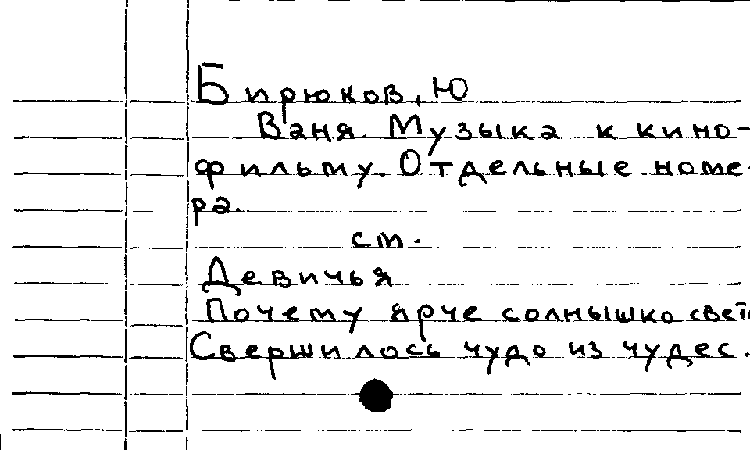 Бирюков, Ю
Ваня. Музыка к кино-
фильму. Отдельные номе-
ра.
ст.
Девичья
Почему ярче солнышко свет
Свершилось чудо из чудес.